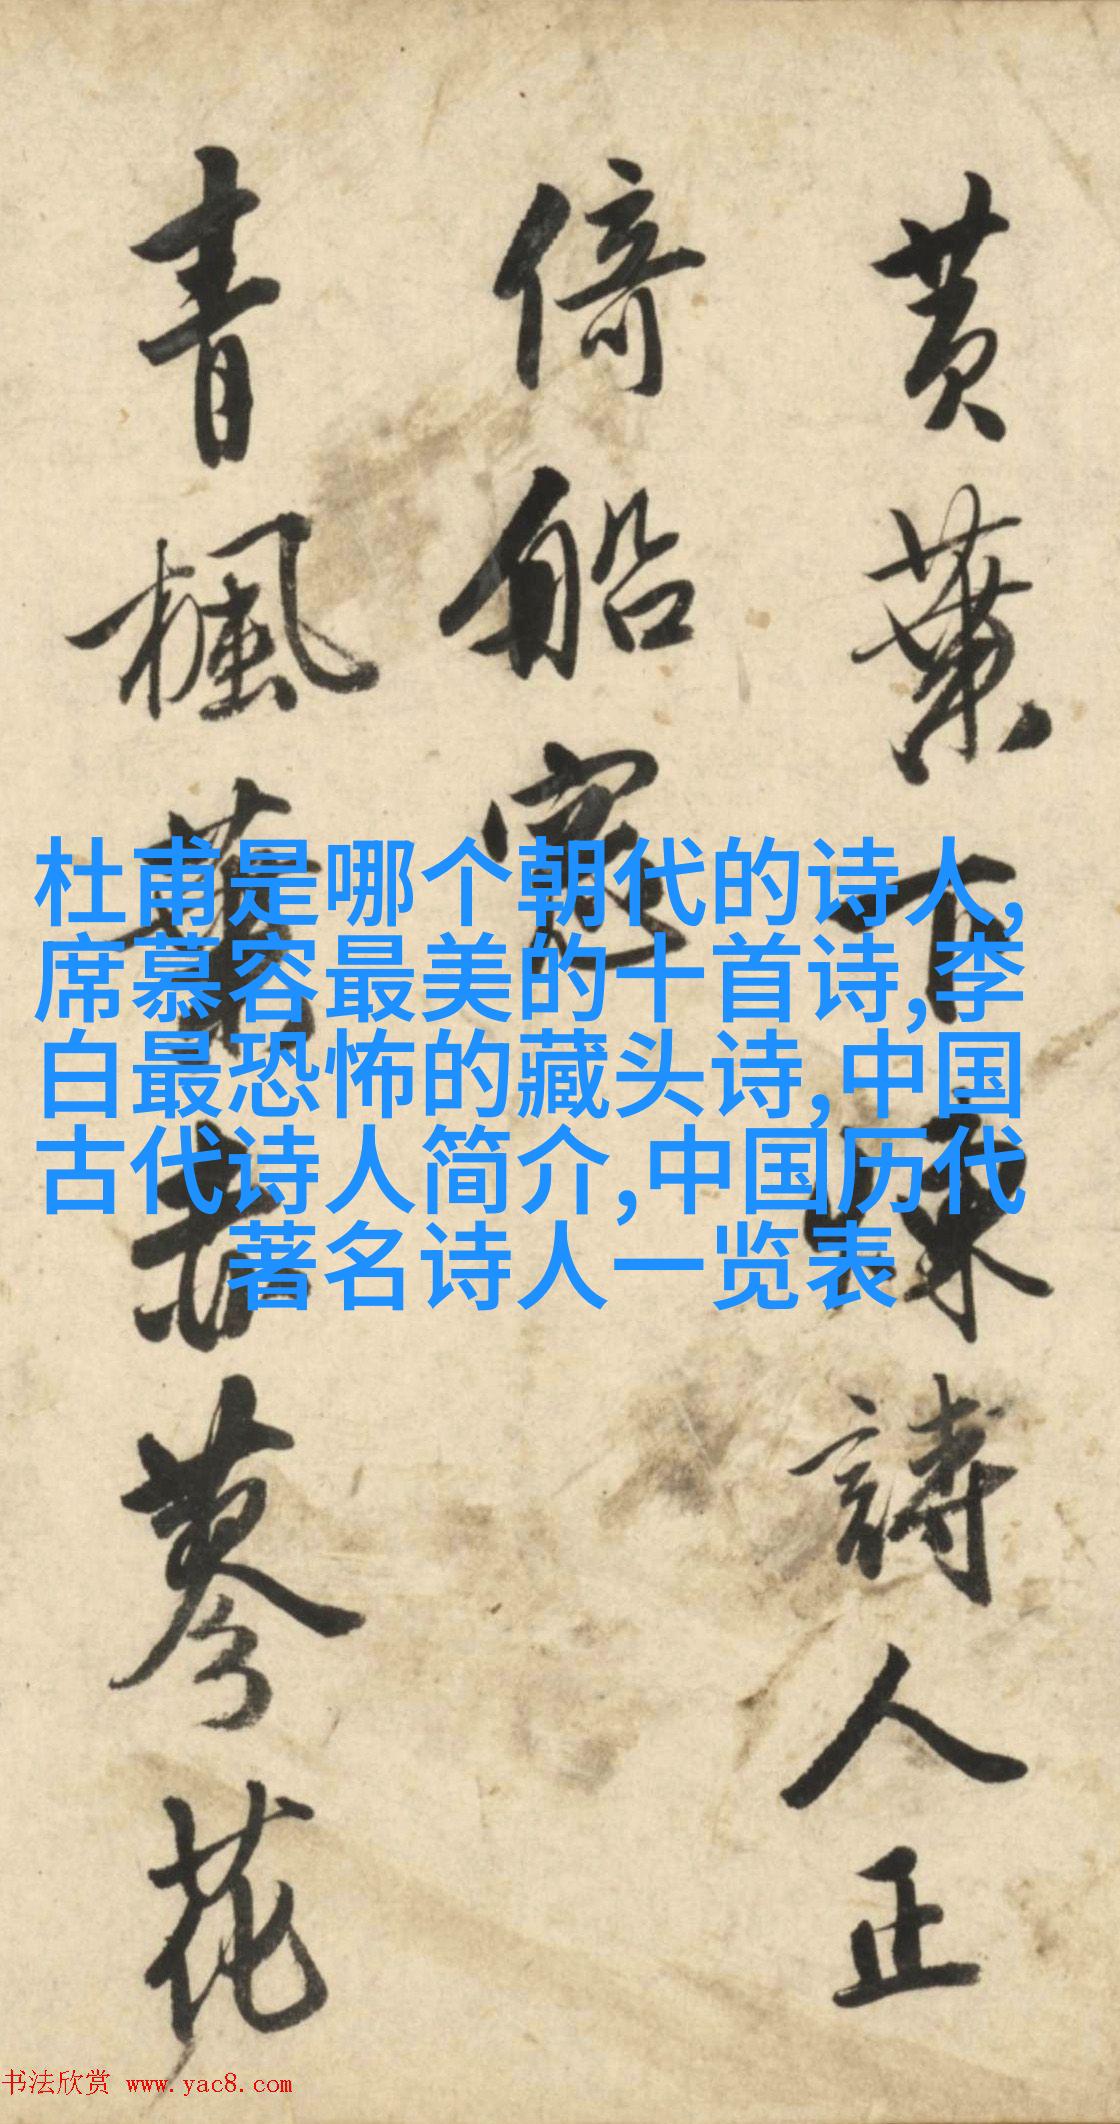 黄葉下陳詩人正
倚船窓
青楓葉赤蓼花
杜甫是哪个朝代的诗人,
席慕容最美的十首诗,李
白最恐怖的藏头诗,中国
古代诗人简介,中国历代
著名诗人一览表
书法欣赏 www.yac8.com